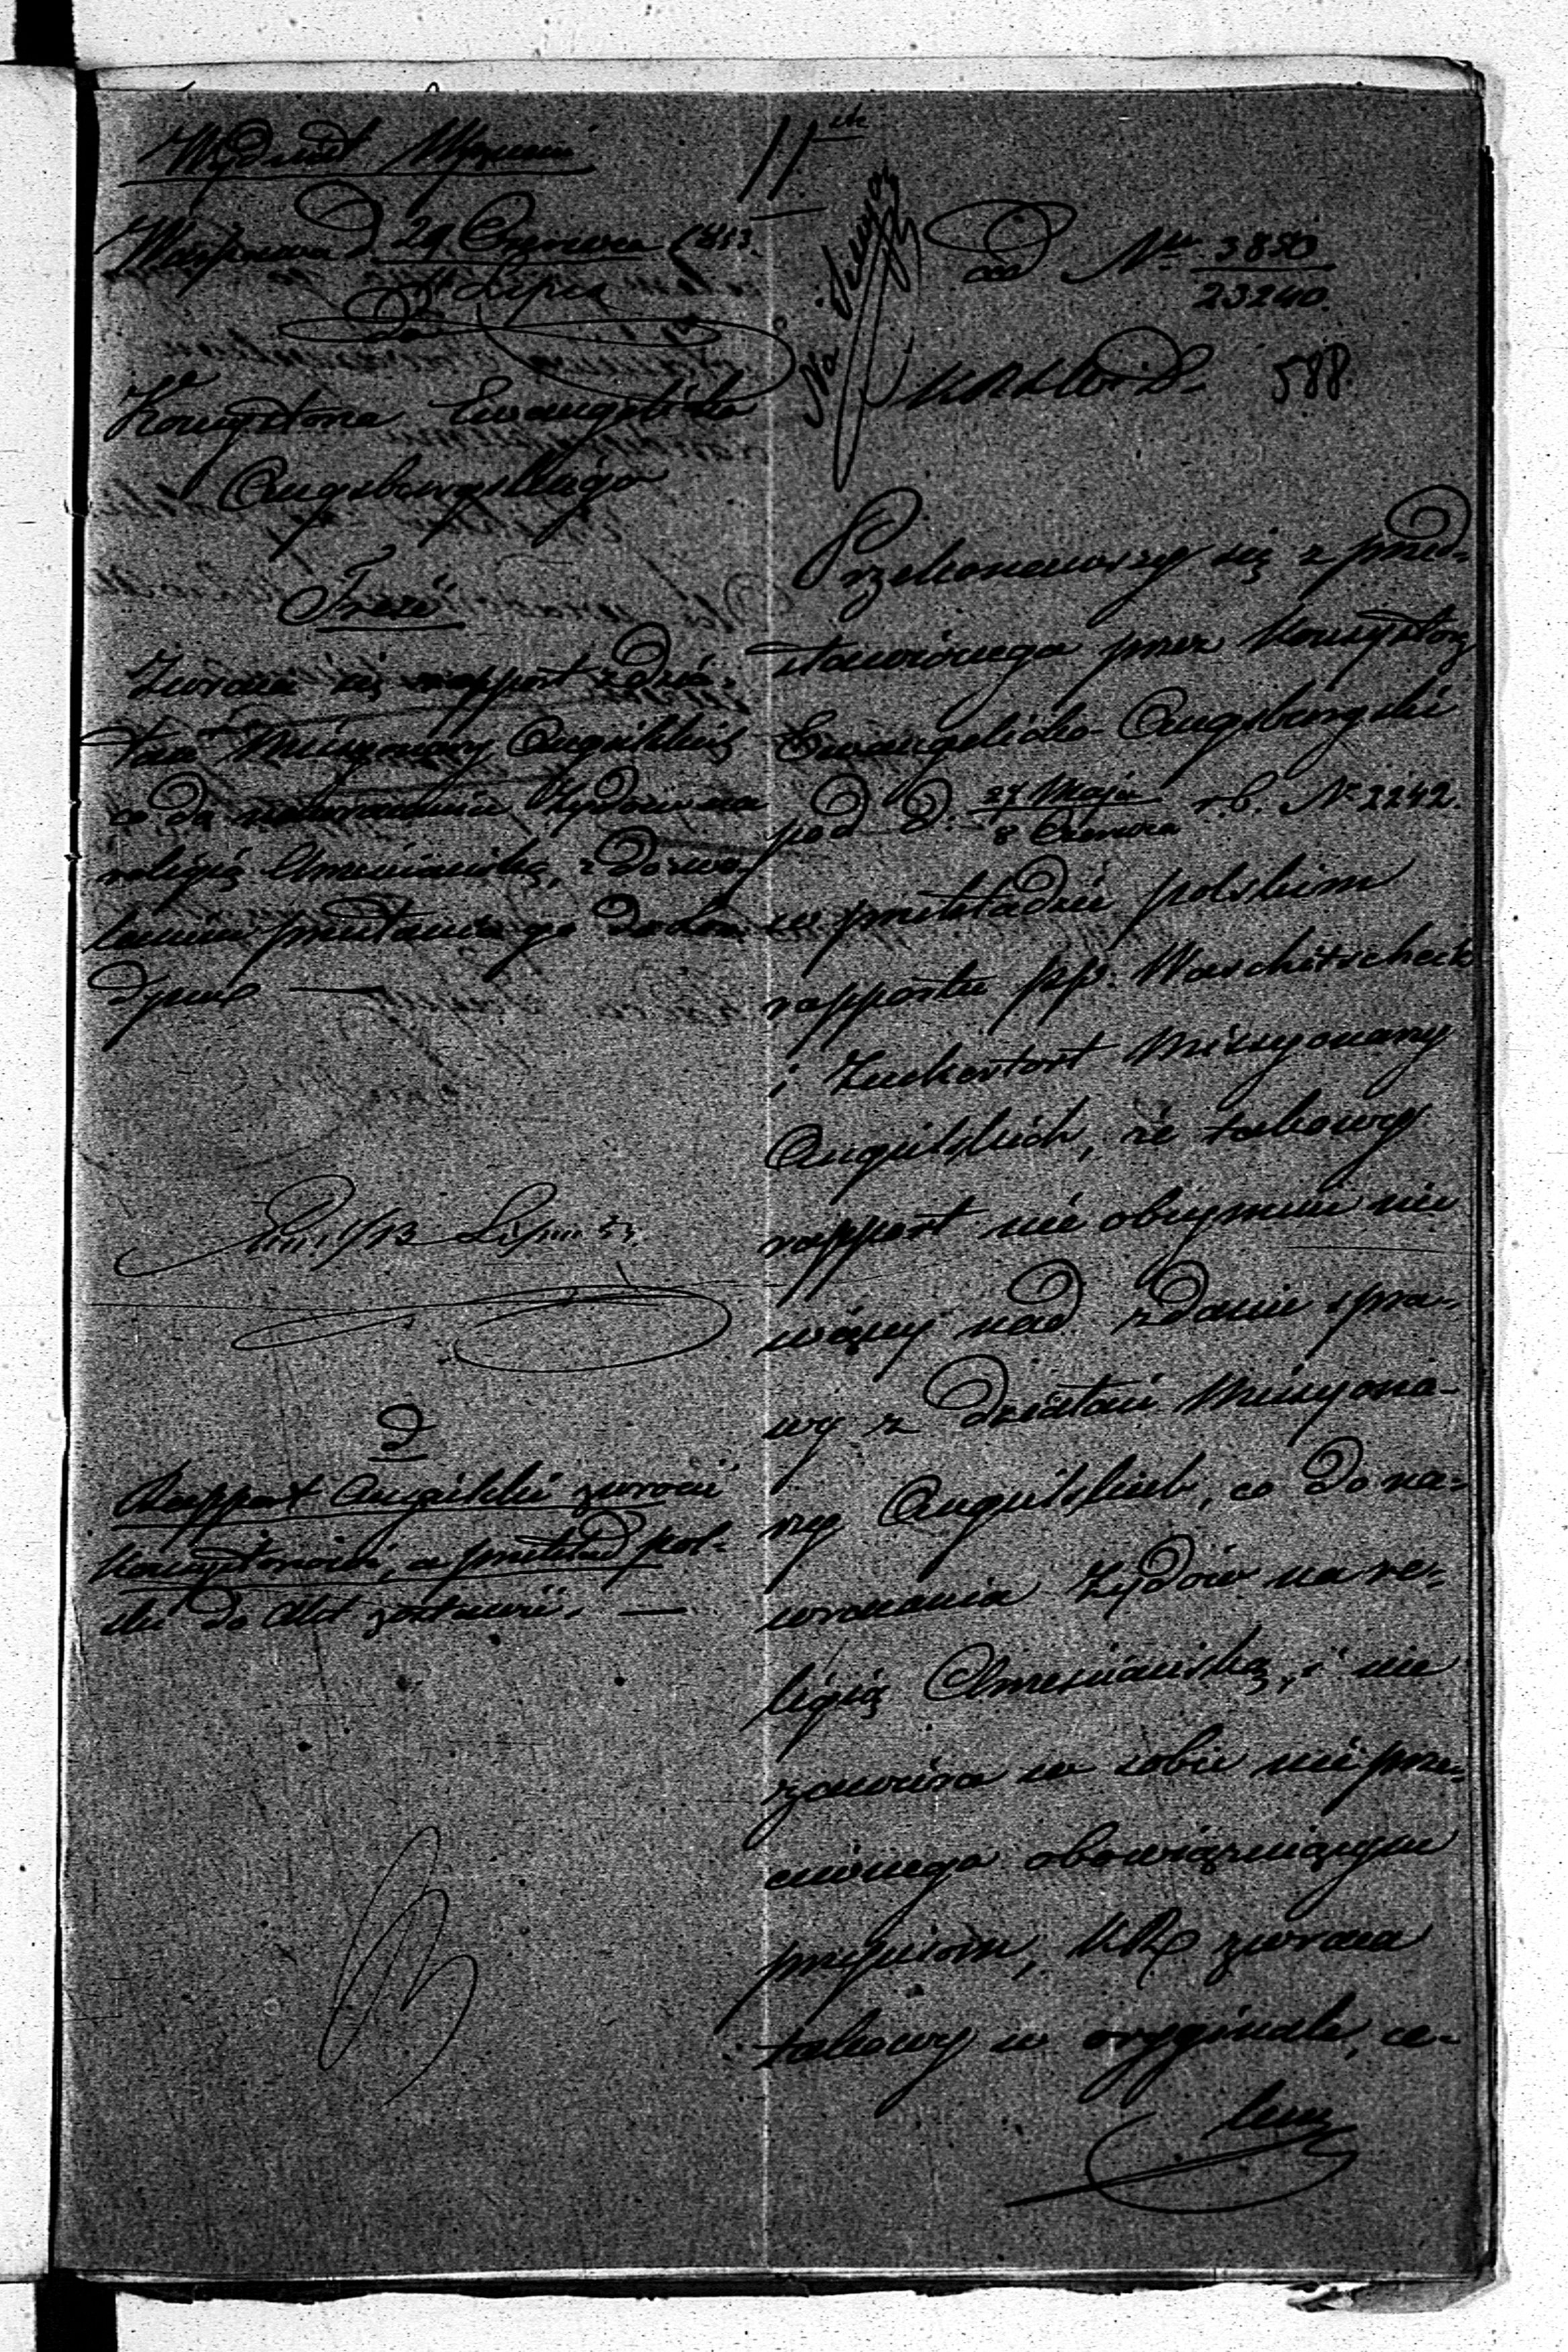 Wydział Wyznań
11
Warszawa d. 29 Czerwca 1853
11 Lipca
Do
Konsystorza Ewangelicko
Augsburgskiego
Treść
Zwraca się rapport z dzia-
łań Missyonarzy Angielskich
co do nawracania Żydów na
religią Chrześciańską, z dozwo-
leniem przesłania go do Lon-
dynu —
13 Lipca 53
d
Rapport Angielski zwrócić
Konsystorzowi, a przekład pol-
ski do Akt zostawić. —
ad Nr 3850
23240
588.
Przekonawszy się z przed-
stawionego przez Konsystorz
Ewangelicko-Augsburgski
pod d. 27 Maja r. b. No 2242.
8 Czerwca
w przekładzie polskim
rapportu pp. Waschitscheck
i Zuckertort Missyonarzy
Angielskich, że takowy
rapport nie obejmuie nic
więcej nad zdanie spra-
wy z działań Missyona-
rzy Angielskich, co do na-
wracania Żydów na re-
ligią Chrześciańską, i nie
zawiera w sobie nic prze-
ciwnego obowiązującym
przepisom, KR zwraca
takowy w oryginale, ce-
lem